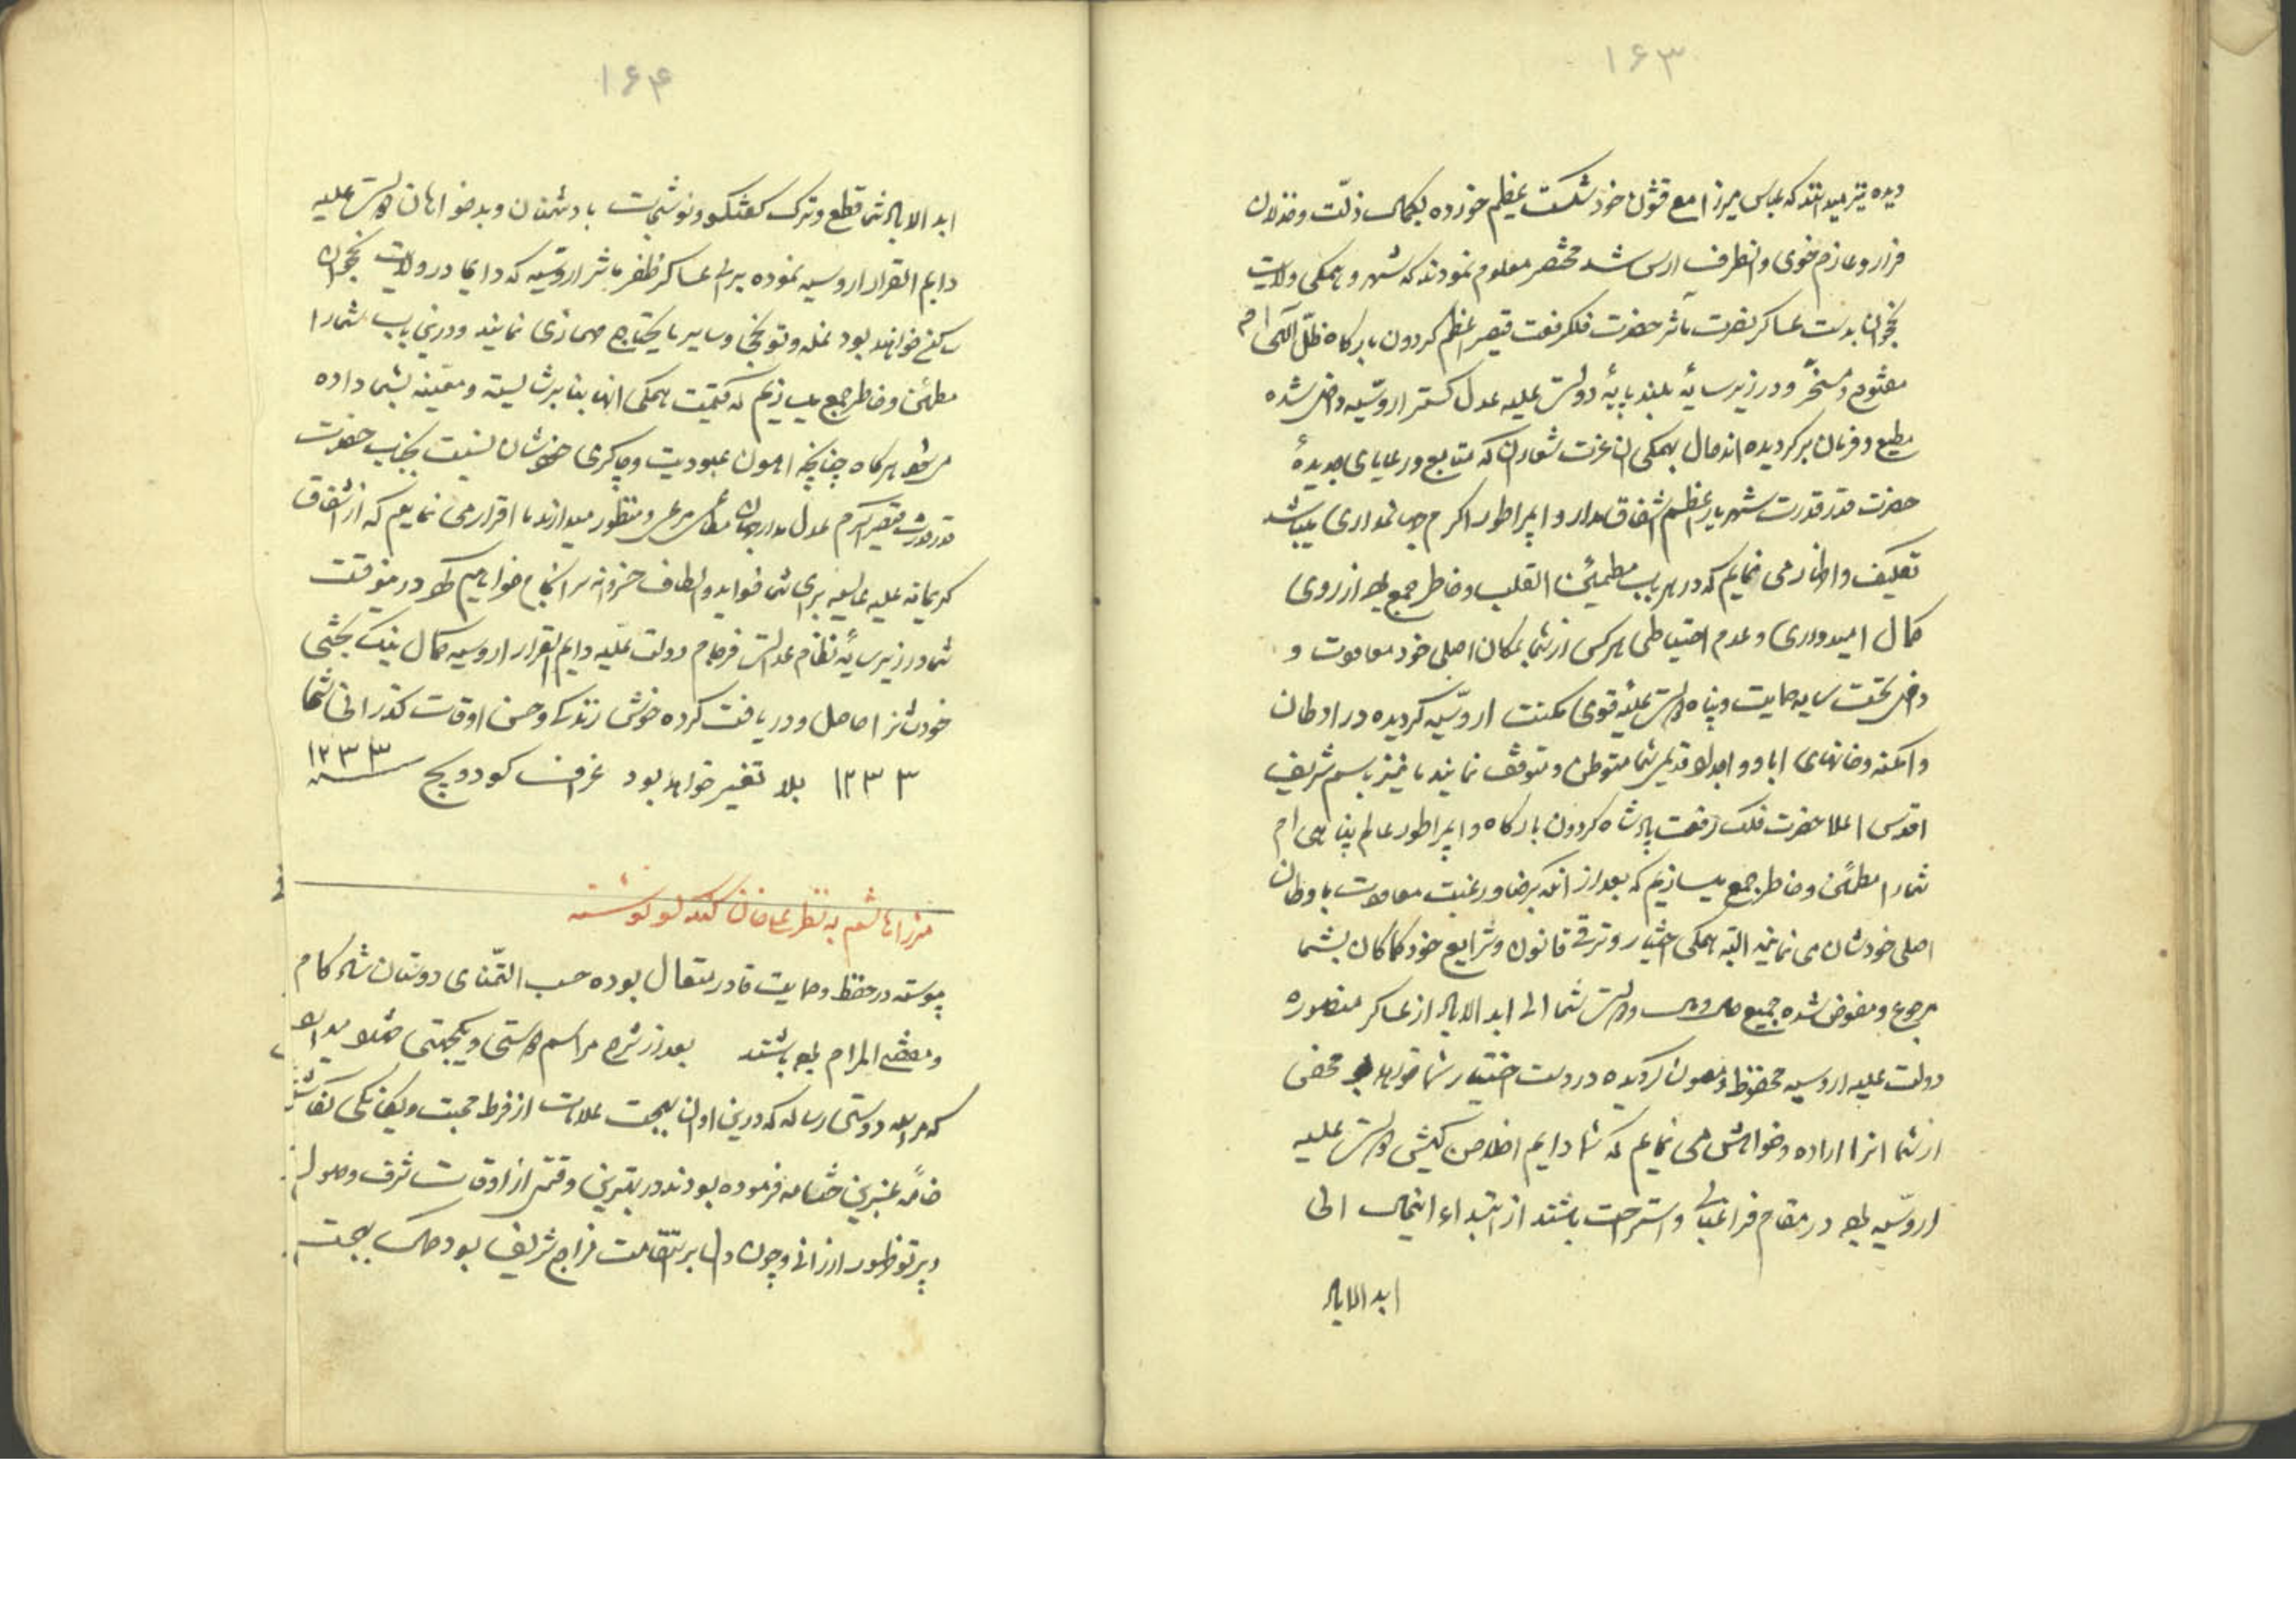 ۱۶۳
دیده نیز میدانند که عباس میرزا مع قشون خود شکست عظیم خورده بکمال ذلّت و خذلان
فرار و عازم خوی و انطرف ارس شد مختصر معلوم نمودند که شهر و همکی ولایت
نخجوان بدست عساکر نصرت مآثر حضرت فلک رفعت قیصر اعظم کردون بارکاه ظلّ اللهی ام
مفتوح و مسخّر و در زیر سایهٔ بلند پایهٔ دولت علیه عدل کستر اروسّیه داخل شده
مطیع و فرمان بر کردیده اند حال بهمکی ان عزت شعاران که متابع و رعایای جدیدهٔ
حضرت قدر قدرت شهریار اعظم اشفاق مدار و ایمپراطور اکرم جهانمداری میباشد
تکلیف و اظهار می نمایم که در هر باب مطمئن القلب و خاطر جمع بوده از روی
کمال امیدواری و عدم احتیاطی هر کس از شما بمکان اصلی خود معاودت و
داخل تحت سایه حمایت و پناه دولت علیّه قوی مکنت اروسّیه کردیده در اوطان
و امکنه و خانهای ابا و اجداد قدیمی شما متوطن و متوقف نمایند ما نیز باسم شریف
اقدس اعلا حضرت فلک رفعت پادشاه کردون بارکاه و ایمپراطور عالم پناهی ام
شما را مطمئن و خاطر جمع میسازیم که بعد از انکه برضا و رغبت معاودت باوطان
اصلی خودشان می نمایند البته همکی اختیار و ترقی قانون و شرایع خود کماکان بشما
مرجوع و مفوض شده جمیع مال و دولت شما الی ابد الاباد از عساکر منصوره
دولت علیه اروسیه محفوظ و مصون کردیده در دست اختیار شما خواهد بود محض
از شما انرا اراده و خواهش می نمایم که شما دایم اخلاص کیش دولت علیه
اروسّیه بوده در مقام فراغبالی و استراحت باشند از ابتداء اینحال الی
ابد الاباد
۱۶۴
ابد الاباد شما قطع و ترک کفتکو و نوشتجات با دشمنان و بدخواهان دولت علیه
دایم القرار اروسیه نموده برای عساکر ظفر مآثر اروسّیه که دایما در ولایت نخجوان
ساکن خواهند بود غله و توتجی و سایر مایحتاج حمازی نمایند و در این باب شما را
مطمئن و خاطر جمع میسازیم که قیمت همکی انها بنا بر شایسته و معینه بشما داده
می شود هر کاه چنانچه امون عبودیت و چاکری خودشان نسبت بجناب حضرت
قدر قدرت قیصر اکرم عدل مدار جهان مطاعی مرعی و منظور میدارند ما اقرار می نمایم که از اشفاق
کریمانه علیه عالیه برای شما فواید و الطاف خسروانه سرانجام خواهیم کرد درینوقت
شما در زیر سایهٔ نظام عدالت فرجام دولت علیّه دایم القرار اروسیه کمال نیک بختی
خودشانرا حاصل و دریافت کرده خوش زندکی و حسن اوقات کذرانی شما
۱۲۳۳ بلا تغییر خواهد بود غراف کودویچ سنه ۱۲۳۳
میرزا هاشم به نظر علیخان کنکرلو نوشته
پیوسته در حفظ و حمایت قادر متعال بوده حسب التمّنای دوستان شاد کام
و مقضی المرام بوده باشند بعد از شرح مراسم دوستی و یکجهتی مشهود میدارد
که مراسله دوستی رساله که درین اوان بهجت علامات از فرط محبت و یکانکی نکاشته
خامه عنبرین ختامه فرموده بودند در بهترین وقتی از اوقات شرف وصول
و پرتو ظهور ارزانی و چون دال بر استقامت مزاج شریف بود حاصل بهجت